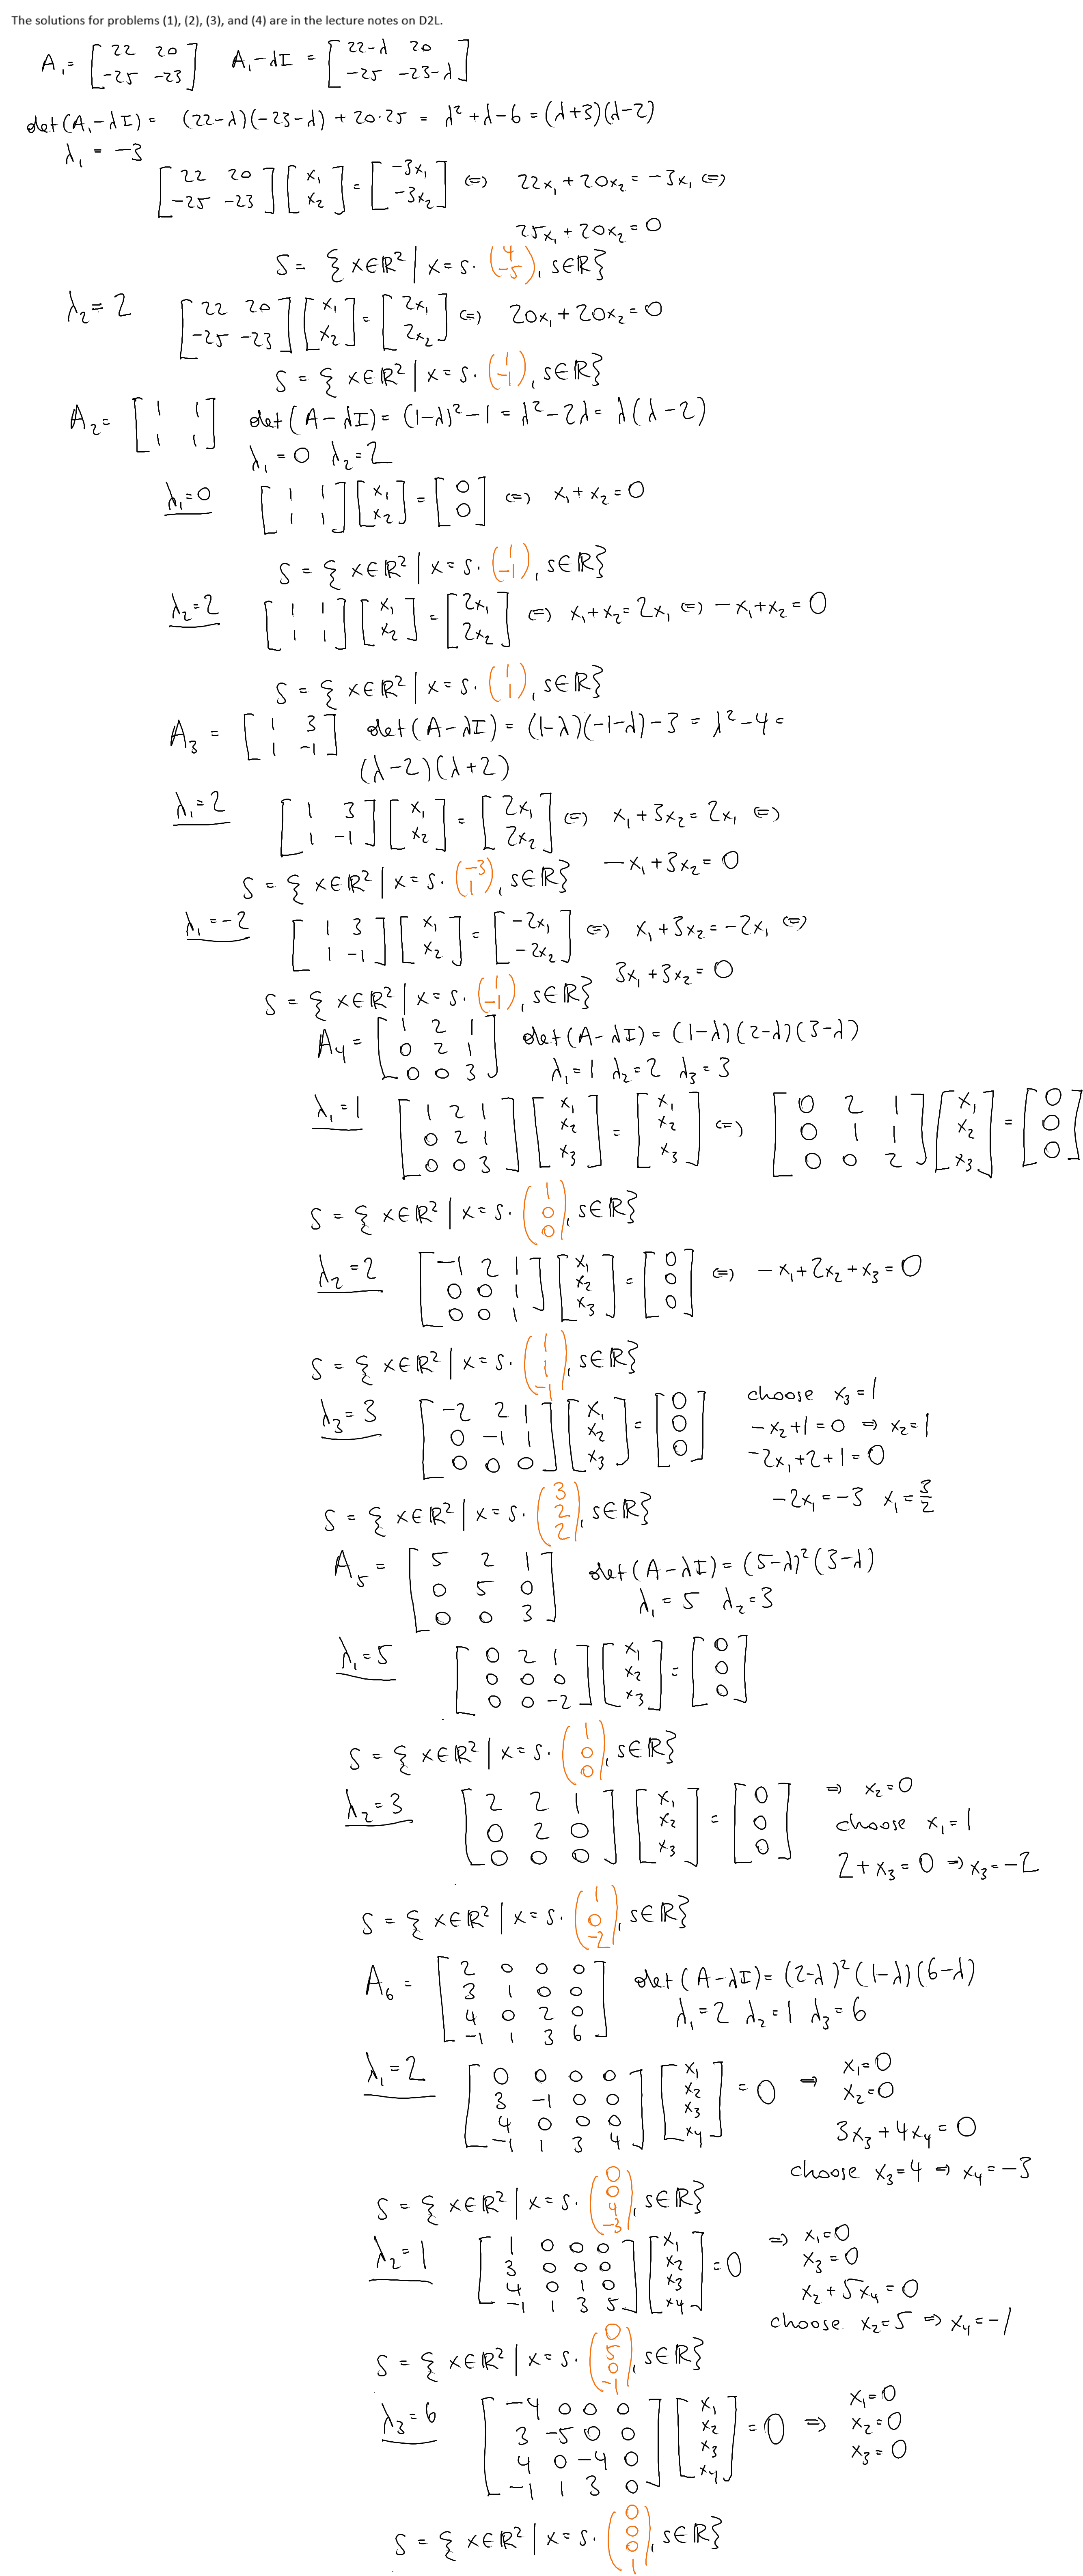 The solutions for problems (1), (2), (3), and (4) are in the lecture notes on D2L.
A₁ = [22 20; -25 -23] A₁-λI = [22-λ 20; -25 -23-λ]
det(A₁-λI) = (22-λ)(-23-λ) + 20·25 = λ²+λ-6 = (λ+3)(λ-2)
λ₁ = -3
[22 20; -25 -23] [x₁; x₂] = [-3x₁; -3x₂] ⇔ 22x₁+20x₂ = -3x₁ ⇔
25x₁+20x₂ = 0
S = {x∈ℝ² | x = s·(4; -5), s∈ℝ}
λ₂ = 2 [22 20; -25 -23] [x₁; x₂] = [2x₁; 2x₂] ⇔ 20x₁+20x₂ = 0
S = {x∈ℝ² | x = s·(1; -1), s∈ℝ}
A₂ = [1 1; 1 1] det(A-λI) = (1-λ)²-1 = λ²-2λ = λ(λ-2)
λ₁ = 0 λ₂ = 2
λ₁=0 [1 1; 1 1] [x₁; x₂] = [0; 0] ⇔ x₁+x₂ = 0
S = {x∈ℝ² | x = s·(1; -1), s∈ℝ}
λ₂=2 [1 1; 1 1] [x₁; x₂] = [2x₁; 2x₂] ⇔ x₁+x₂ = 2x₁ ⇔ -x₁+x₂ = 0
S = {x∈ℝ² | x = s·(1; 1), s∈ℝ}
A₃ = [1 3; 1 -1] det(A-λI) = (1-λ)(-1-λ)-3 = λ²-4 =
(λ-2)(λ+2)
λ₁=2 [1 3; 1 -1] [x₁; x₂] = [2x₁; 2x₂] ⇔ x₁+3x₂ = 2x₁ ⇔
-x₁+3x₂ = 0
S = {x∈ℝ² | x = s·(-3; 1), s∈ℝ}
λ₁=-2 [1 3; 1 -1] [x₁; x₂] = [-2x₁; -2x₂] ⇔ x₁+3x₂ = -2x₁ ⇔
3x₁+3x₂ = 0
S = {x∈ℝ² | x = s·(1; -1), s∈ℝ}
A₄ = [1 2 1; 0 2 1; 0 0 3] det(A-λI) = (1-λ)(2-λ)(3-λ)
λ₁=1 λ₂=2 λ₃=3
λ₁=1 [1 2 1; 0 2 1; 0 0 3] [x₁; x₂; x₃] = [x₁; x₂; x₃] ⇔ [0 2 1; 0 1 1; 0 0 2] [x₁; x₂; x₃] = [0; 0; 0]
S = {x∈ℝ² | x = s·(1; 0; 0), s∈ℝ}
λ₂=2 [-1 2 1; 0 0 1; 0 0 1] [x₁; x₂; x₃] = [0; 0; 0] ⇔ -x₁+2x₂+x₃ = 0
S = {x∈ℝ² | x = s·(1; 1; -1), s∈ℝ}
λ₃=3 [-2 2 1; 0 -1 1; 0 0 0] [x₁; x₂; x₃] = [0; 0; 0]
choose x₃=1
-x₂+1=0 ⇒ x₂=1
-2x₁+2+1=0
-2x₁=-3 x₁=3/2
S = {x∈ℝ² | x = s·(3; 2; 2), s∈ℝ}
A₅ = [5 2 1; 0 5 0; 0 0 3] det(A-λI) = (5-λ)²(3-λ)
λ₁=5 λ₂=3
λ₁=5 [0 2 1; 0 0 0; 0 0 -2] [x₁; x₂; x₃] = [0; 0; 0]
S = {x∈ℝ² | x = s·(1; 0; 0), s∈ℝ}
λ₂=3 [2 2 1; 0 2 0; 0 0 0] [x₁; x₂; x₃] = [0; 0; 0]
⇒ x₂=0
choose x₁=1
2+x₃=0 ⇒ x₃=-2
S = {x∈ℝ² | x = s·(1; 0; -2), s∈ℝ}
A₆ = [2 0 0 0; 3 1 0 0; 4 0 2 0; -1 1 3 6] det(A-λI) = (2-λ)²(1-λ)(6-λ)
λ₁=2 λ₂=1 λ₃=6
λ₁=2 [0 0 0 0; 3 -1 0 0; 4 0 0 0; -1 1 3 4] [x₁; x₂; x₃; x₄] = 0 ⇒
x₁=0
x₂=0
3x₃+4x₄=0
choose x₃=4 ⇒ x₄=-3
S = {x∈ℝ² | x = s·(0; 0; 4; -3), s∈ℝ}
λ₂=1 [1 0 0 0; 3 0 0 0; 4 0 1 0; -1 1 3 5] [x₁; x₂; x₃; x₄] = 0
⇒ x₁=0
x₃=0
x₂+5x₄=0
choose x₂=5 ⇒ x₄=-1
S = {x∈ℝ² | x = s·(0; 5; 0; -1), s∈ℝ}
λ₃=6 [-4 0 0 0; 3 -5 0 0; 4 0 -4 0; -1 1 3 0] [x₁; x₂; x₃; x₄] = 0 ⇒
x₁=0
x₂=0
x₃=0
S = {x∈ℝ² | x = s·(0; 0; 0; 1), s∈ℝ}